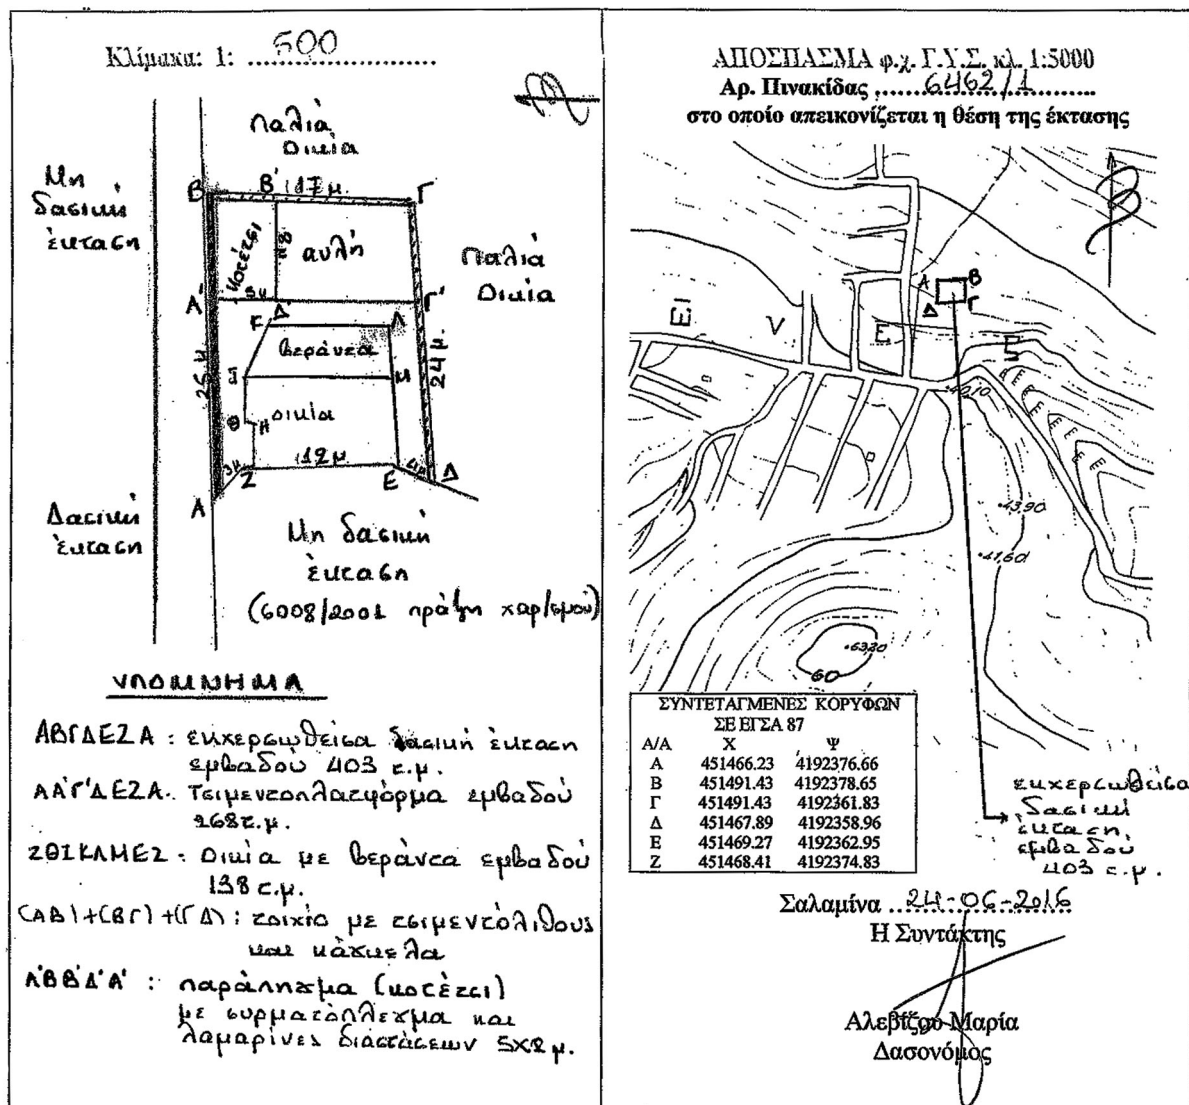 Κλίμακα: 1: ...500...
παλιά
οικία
Μη
δασική
έκταση
Β
Β'
17 μ.
Γ
κοτέτσι
8
αυλή
παλιά
οικία
Α'
5μ
Δ'
Γ'
Κ
Λ
βεράντα
25 μ
24 μ.
Μ
Θ
Η
οικία
3μ
Ζ
12μ.
Ε
4μ
Δ
Α
Δασική
έκταση
Μη δασική
έκταση
(6008/2001 πράξη χαρ/σμού)
ΥΠΟΜΝΗΜΑ
ΑΒΓΔΕΖΑ : εκχερσωθείσα δασική έκταση
εμβαδού 403 τ.μ.
ΑΑ'Γ'ΔΕΖΑ: Τσιμεντοπλατφόρμα εμβαδού
268τ.μ.
ΖΘΙΚΛΜΕΖ : οικία με βεράντα εμβαδού
138 τ.μ.
(ΑΒ)+(ΒΓ)+(ΓΔ) : τοιχίο με τσιμεντόλιθους
και κάγκελα
Α'ΒΒ'Δ'Α' : παράπηγμα (κοτέτσι)
με συρματόπλεγμα και
λαμαρίνες διαστάσεων 5Χ8 μ.
ΑΠΟΣΠΑΣΜΑ φ.χ. Γ.Υ.Σ. κλ. 1:5000
Αρ. Πινακίδας ,.....6462/1..........
στο οποίο απεικονίζεται η θέση της έκτασης
Α
Β
Δ
Γ
Ε
40,10
43,90
41,60
63,20
60
ΣΥΝΤΕΤΑΓΜΕΝΕΣ ΚΟΡΥΦΩΝ
ΣΕ ΕΓΣΑ 87
Α/Α Χ Ψ
Α 451466.23 4192376.66
Β 451491.43 4192378.65
Γ 451491.43 4192361.83
Δ 451467.89 4192358.96
Ε 451469.27 4192362.95
Ζ 451468.41 4192374.83
εκχερσωθείσα
δασική
έκταση,
εμβαδού
403 τ.μ.
Σαλαμίνα ..24-06-2016
Η Συντάκτης
Αλεβίζου Μαρία
Δασονόμος